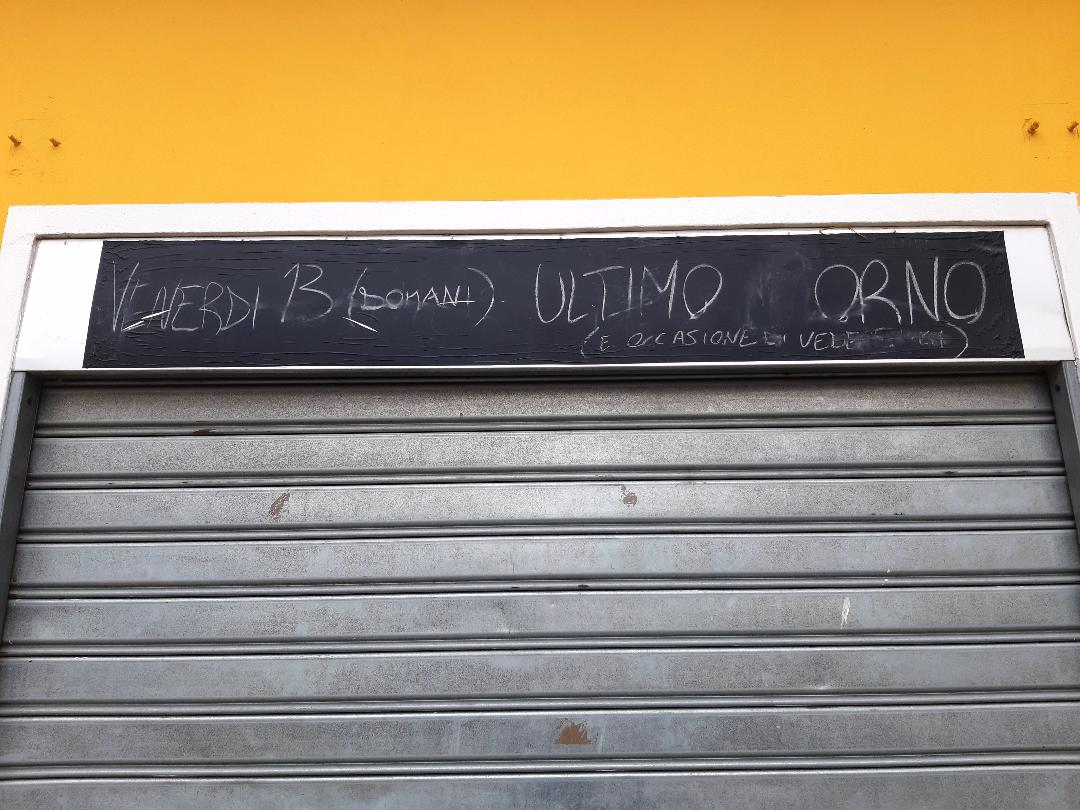 VENERDI 13 (DOMANI) ULTIMO ORNO
(E OCCASIONE DI VEDE